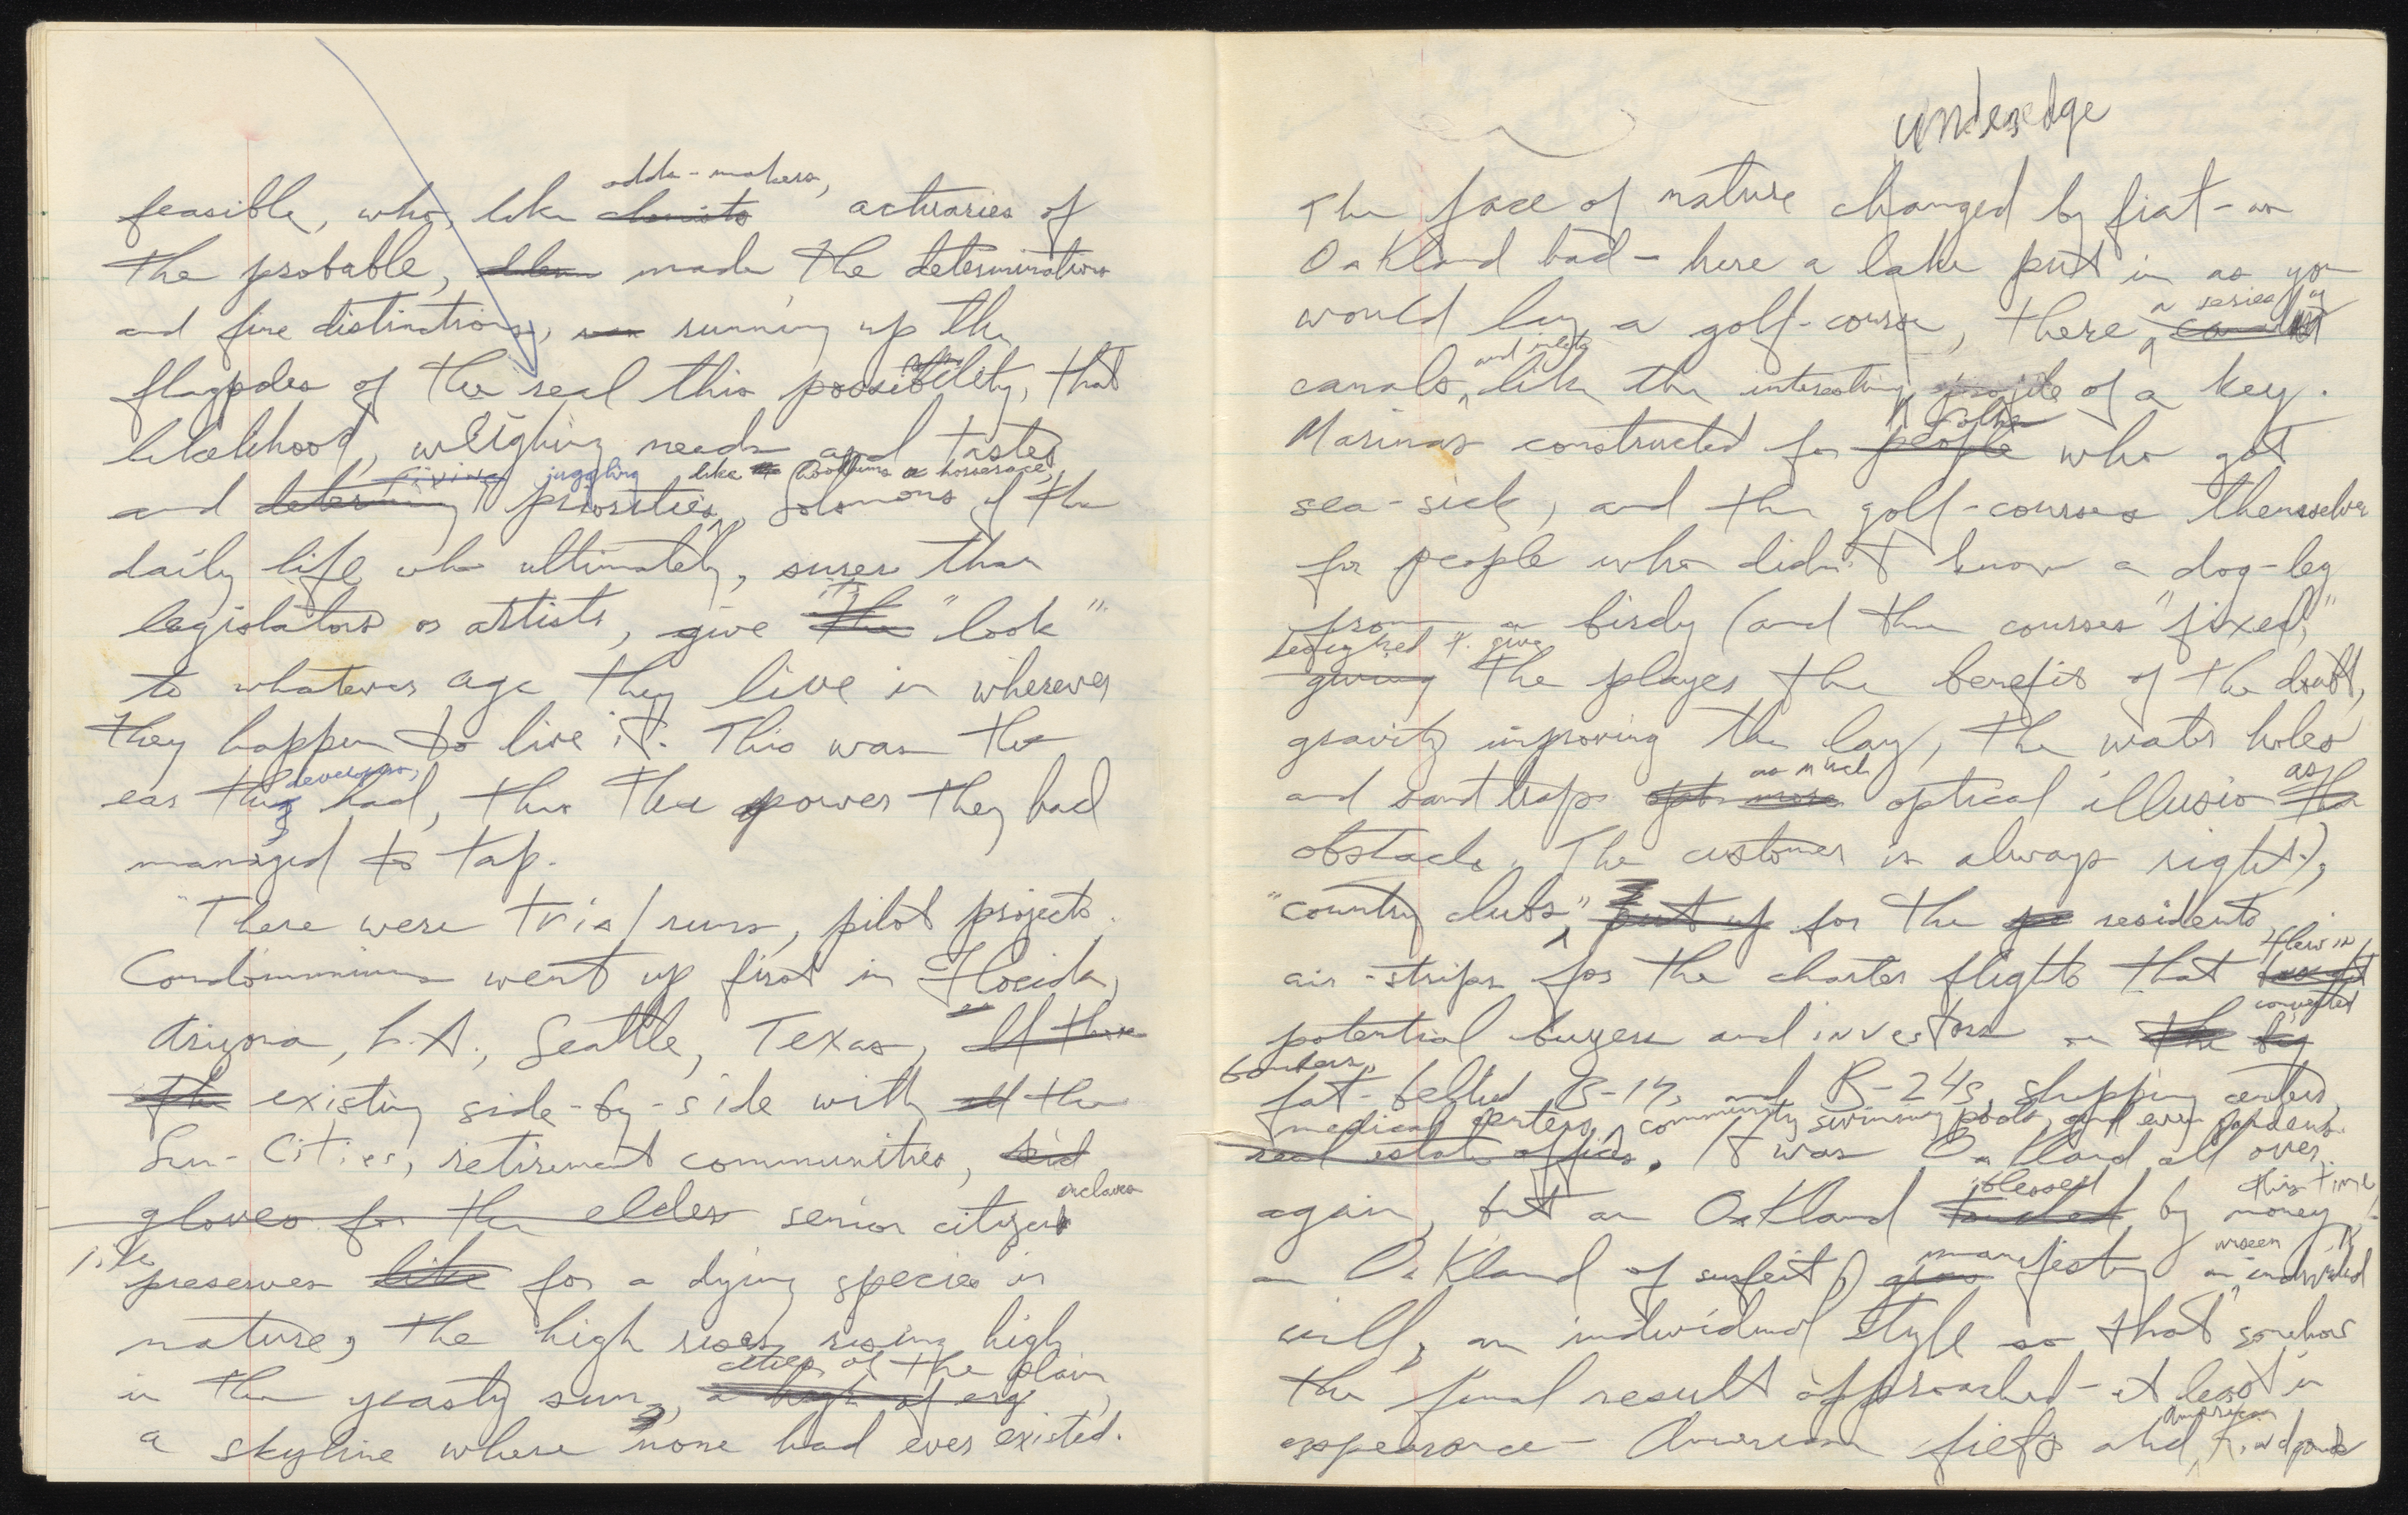 odds-makers,
feasible, who, like chemists actuaries of
the probable, made the determinations
and fine distinctions, running up the
flagpoles of the real this possibility, that
likelihood, weighing needs and tastes
fixing juggling like bookmaking a horserace,
and determining priorities, Solomons of the
daily life who ultimately, surer than
its
legislators or artists, give the "look"
to whatever age they live in wherever
they happen to live it. This was the
developers,
ear they had, this the power they had
managed to tap.
"There were trial runs, pilot projects.
Condominiums went up first in Florida,
Arizona, L.A., Seattle, Texas, all these
the existing side-by-side with all the
Sun-Cities, retirement communities, kid
enclaves
gloves for the elder senior citizens
like
preserves like for a dying species in
nature, the high rises rising high
cities of the plain
in the yeasty sun, a high of erg,
a skyline where none had ever existed.
underedge
The face of nature changed by fiat - as
Oakland had - here a lake put in as you
a series of
would lay a golf-course, there canals
and inlets
canals, like the interesting profile of a key.
folks
Marinas constructed for people who got
sea-sick, and the golf-courses themselves
for people who didn't know a dog-leg
from a birdy (and the courses "fixed,"
designed to give
giving the player the benefit of the doubt,
gravity improving the lay, the water holes
as much as
and sand traps opt more optical illusion than
obstacle. The customer is always right.),
"country clubs," put up for the residents,
flew in
air-strips for the charter flights that brought
converted
potential buyers and investors in the big
bombers,
fat-bellied B-17s and B-24s, shopping centers,
medical centers, community swimming pools, and even gardens.
real estate offices. It was Oakland all over
blessed this time
again, but an Oakland touched by money,
manifesting unseen
an Oakland of surfeit, an individual
will, an individual style so that somehow
the final result approached - at least in
American
appearance - American fiefs and kingdoms